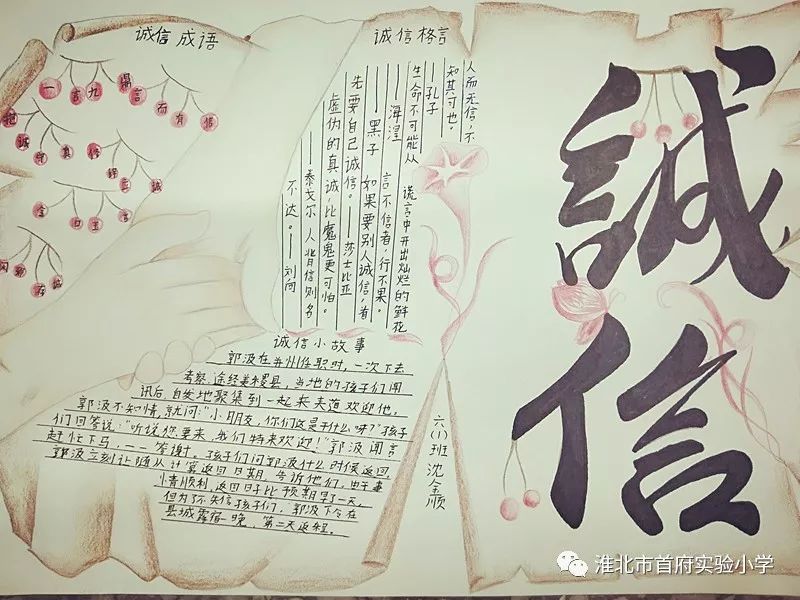 诚信成语
一言九鼎
言而有信
抱诚守真
金口玉言
闲邪存诚
诚信格言
人而无信，不
知其可也。
——孔子
生命不可能从
谎言中开出灿烂的鲜花
——海涅
言不信者，行不果。
——黑子
如果要别人诚信，首
先要自己诚信。——莎士比亚
虚伪的真诚，比魔鬼更可怕。
——泰戈尔 人背信则名
不达。——刘向
诚信小故事
郭汲在并州任职时，一次下去
考察，途经美稷县，当地的孩子们闻
讯后，自发地聚集到一起来夹道欢迎他。
郭汲不知情，就问："小朋友，你们这是干什么呀？"孩子
们回答说："听说您要来，我们特来欢迎！"郭汲闻言
赶忙下马，一一答谢。孩子们问郭汲什么时候返回
郭汲立刻让随从计算返回日期，告诉他们。由于事
情顺利，返回日子比预期早了一天。
但为了不失信孩子们，郭汲下令在
县城露宿一晚，第二天返程。
六(1)班 沈金顺
誠信
淮北市首府实验小学